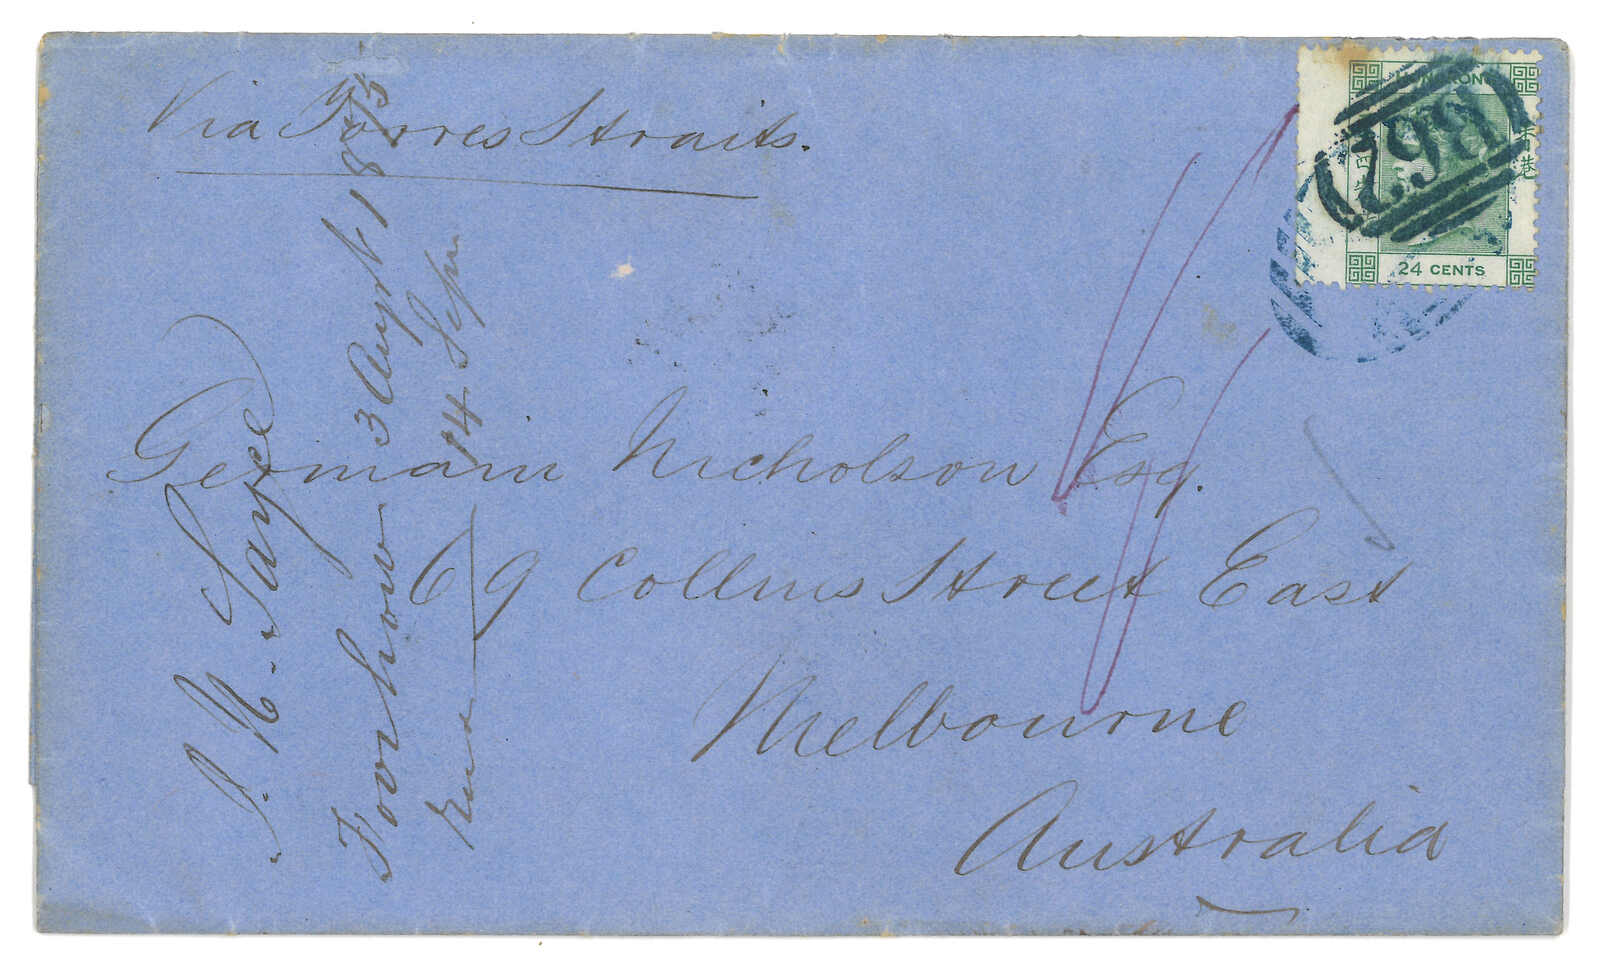 Via Torres Straits.
HONG KONG
B62
港
24 CENTS
Germain Nicholson Esq.
69 Collins Street East
Melbourne
Australia
Foochow 3 Augst 1875
14 Sepr